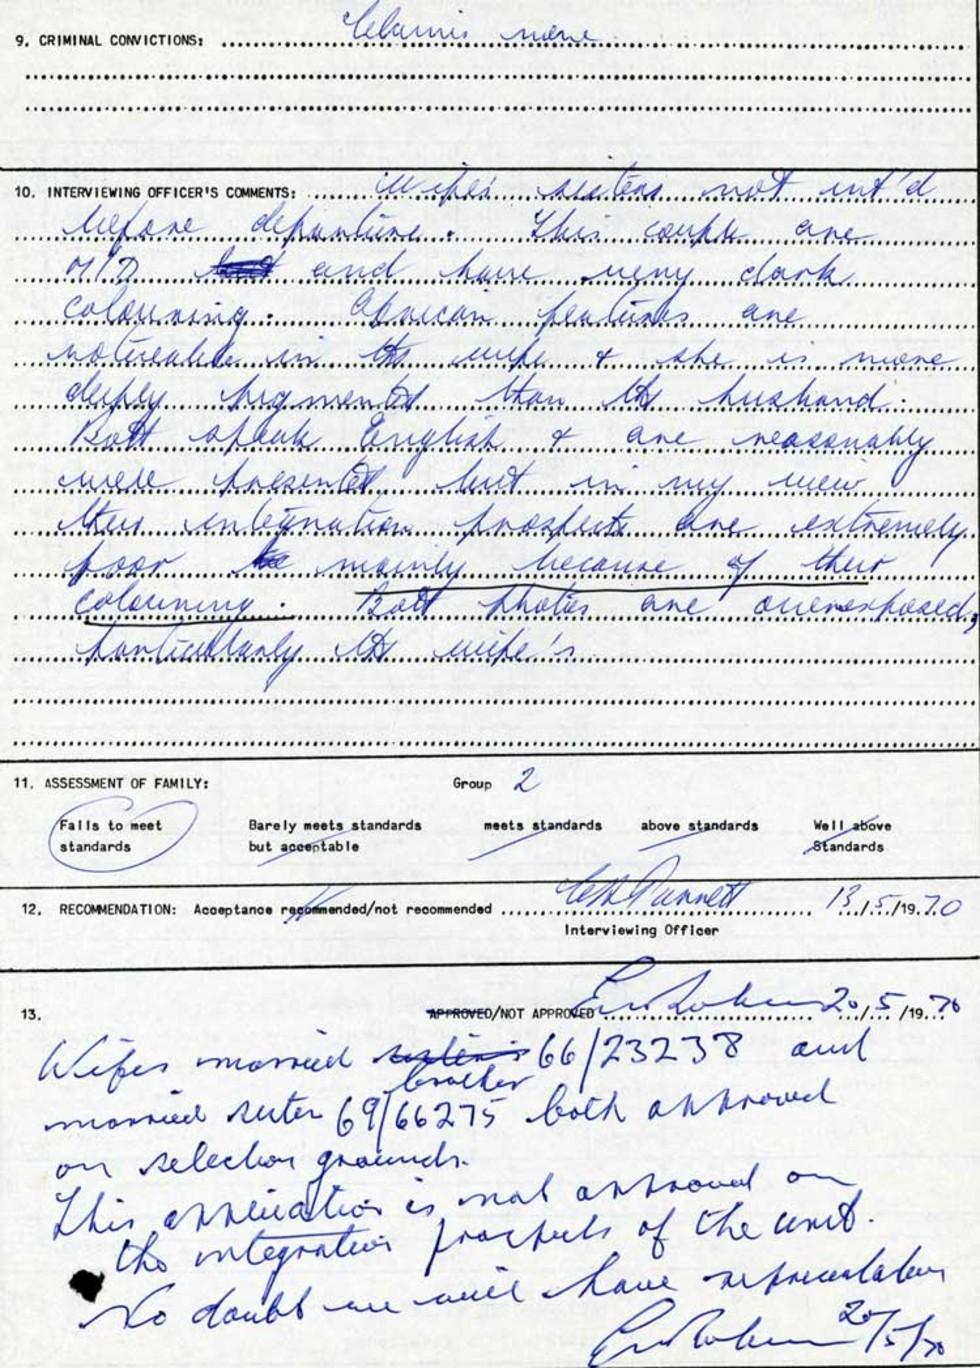 9. CRIMINAL CONVICTIONS: Claims none
10. INTERVIEWING OFFICER'S COMMENTS: Wife's sisters not int'd
before departure. This couple are
M/R and have very dark
colouring. African features are
noticeable in the wife & she is more
deeply pigmented than the husband.
Both speak English & are reasonably
well presented, but in my view
their integration prospects are extremely
poor mainly because of their
colouring. Both photos are overexposed,
particularly the wife's.
11. ASSESSMENT OF FAMILY: Group 2
Fails to meet standards
Barely meets standards but acceptable
meets standards
above standards
Well above Standards
12. RECOMMENDATION: Acceptance recommended/not recommended 13/5/1970
Interviewing Officer
13. APPROVED/NOT APPROVED 20/5/1970
Wifes married sister's brother 66/23238 and
married sister 69/66275 both approved
on selection grounds.
This application is not approved on
the integration prospects of the unit.
No doubt we will have representation
20/5/70